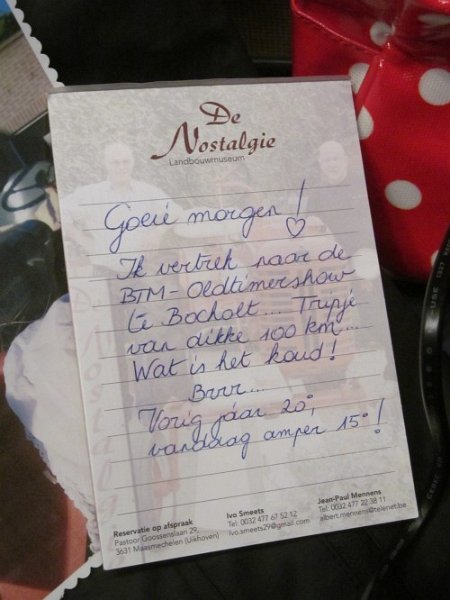 De
Nostalgie
Landbouwmuseum
Goeié morgen! ♡
Ik vertrek naar de
BTM-Oldtimershow
te Bocholt... Tripje
van dikke 100 km...
Wat is het koud!
Brrr...
Vorig jáar 20°,
vandaag amper 15°!
Reservatie op afspraak
Pastoor Goossenslaan 29,
3631 Maasmechelen (Uikhoven)
Ivo Smeets
Tel: 0032 477 67 52 12
ivo.smeets29@gmail.com
Jean-Paul Mennens
Tel: 0032 477 22 38 11
albert.mennens@telenet.be